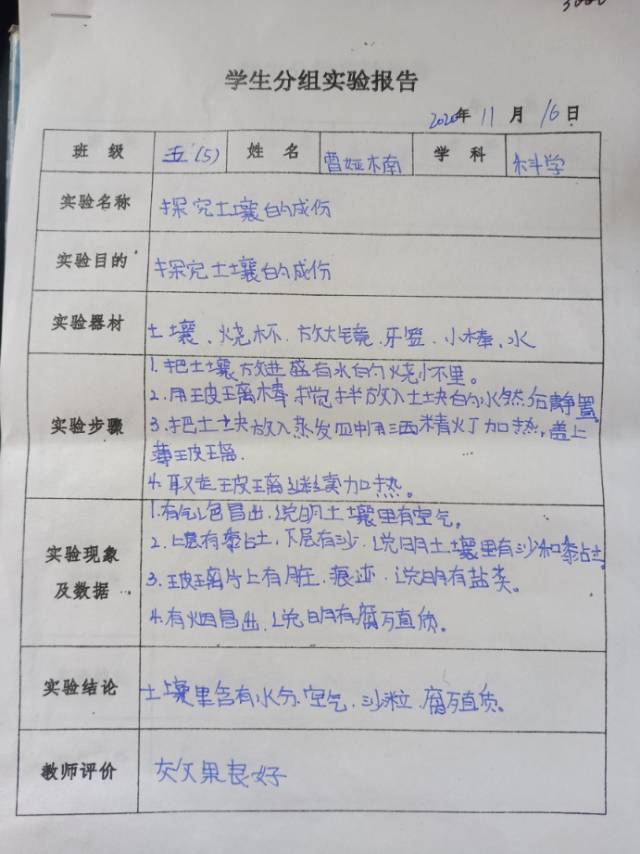 学生分组实验报告
2020年 11 月 16 日
班 级 五(5) 姓 名 曹娅楠 学 科 科学
实验名称 探究土壤的成份
实验目的 探究土壤的成份
实验器材 土壤、烧杯、放大镜、牙签、小棒、水
实验步骤
1.把土壤放进盛有水的烧杯里。
2.用玻璃棒搅拌放入土块的水然后静置
3.把土块放入蒸发皿中用酒精灯加热,盖上
薄玻璃.
4.取走玻璃继续加热。
实验现象及数据
1.有气泡冒出,说明土壤里有空气。
2.上层有黏土,下层有沙,说明土壤里有沙和黏土。
3.玻璃片上有脏、痕迹,说明有盐类。
4.有烟冒出,说明有腐殖质。
实验结论 土壤里含有水分、空气、沙粒、腐殖质。
教师评价 效果良好